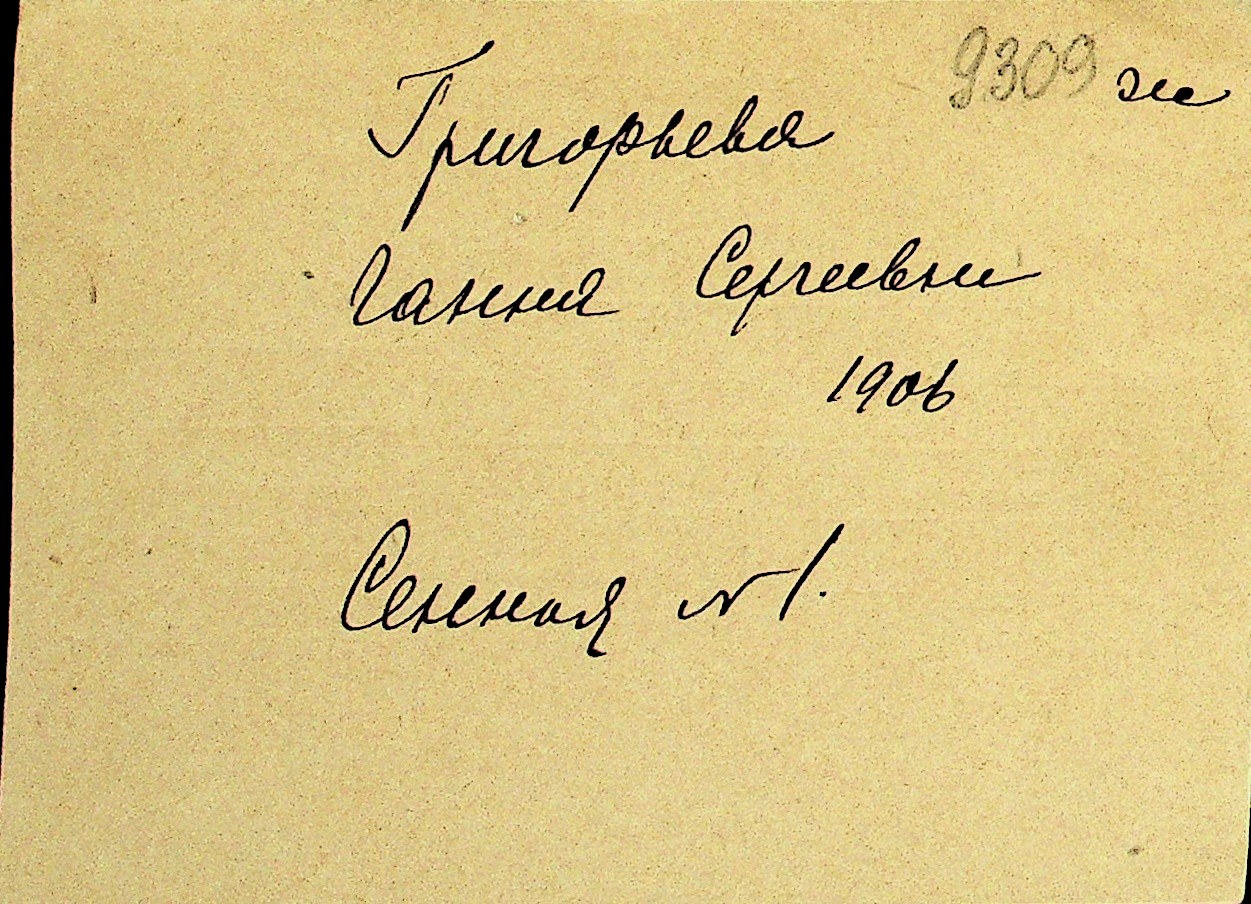 9309 ж
Григорьева
Ганния Сергеевн
1906
Сенная № 1.